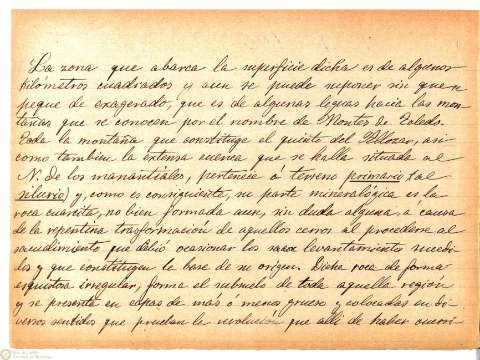 La zona que abarca la superficie dicha es de algunos
kilómetros cuadrados y aun se puede suponer sin que se
peque de exagerado, que es de algunas leguas hacia las mon-
tañas que se conocen por el nombre de Montes de Toledo.
Toda la montaña que constituye el quinto del Pollozar, asi
como tambien la extensa cuenca que se halla situada al
N. de los manantiales, pertenece á terreno primario (al
silurio) y, como es consiguiente, su parte mineralógica es la
roca cuarcita, no bien formada aun, sin duda alguna, a causa
de la repentina trasformacion de aquellos cerros al procederse al
sacudimiento que debió ocasionar los levantamientos sucedi-
dos y que constituyen la base de su origen. Dicha roca de forma
esquistosa irregular, forma el subsuelo de toda aquella region
y se presenta en capas de mas ó menos grueso y colocadas en di-
versos sentidos que prueban la revolución que alli de haber ocurri-